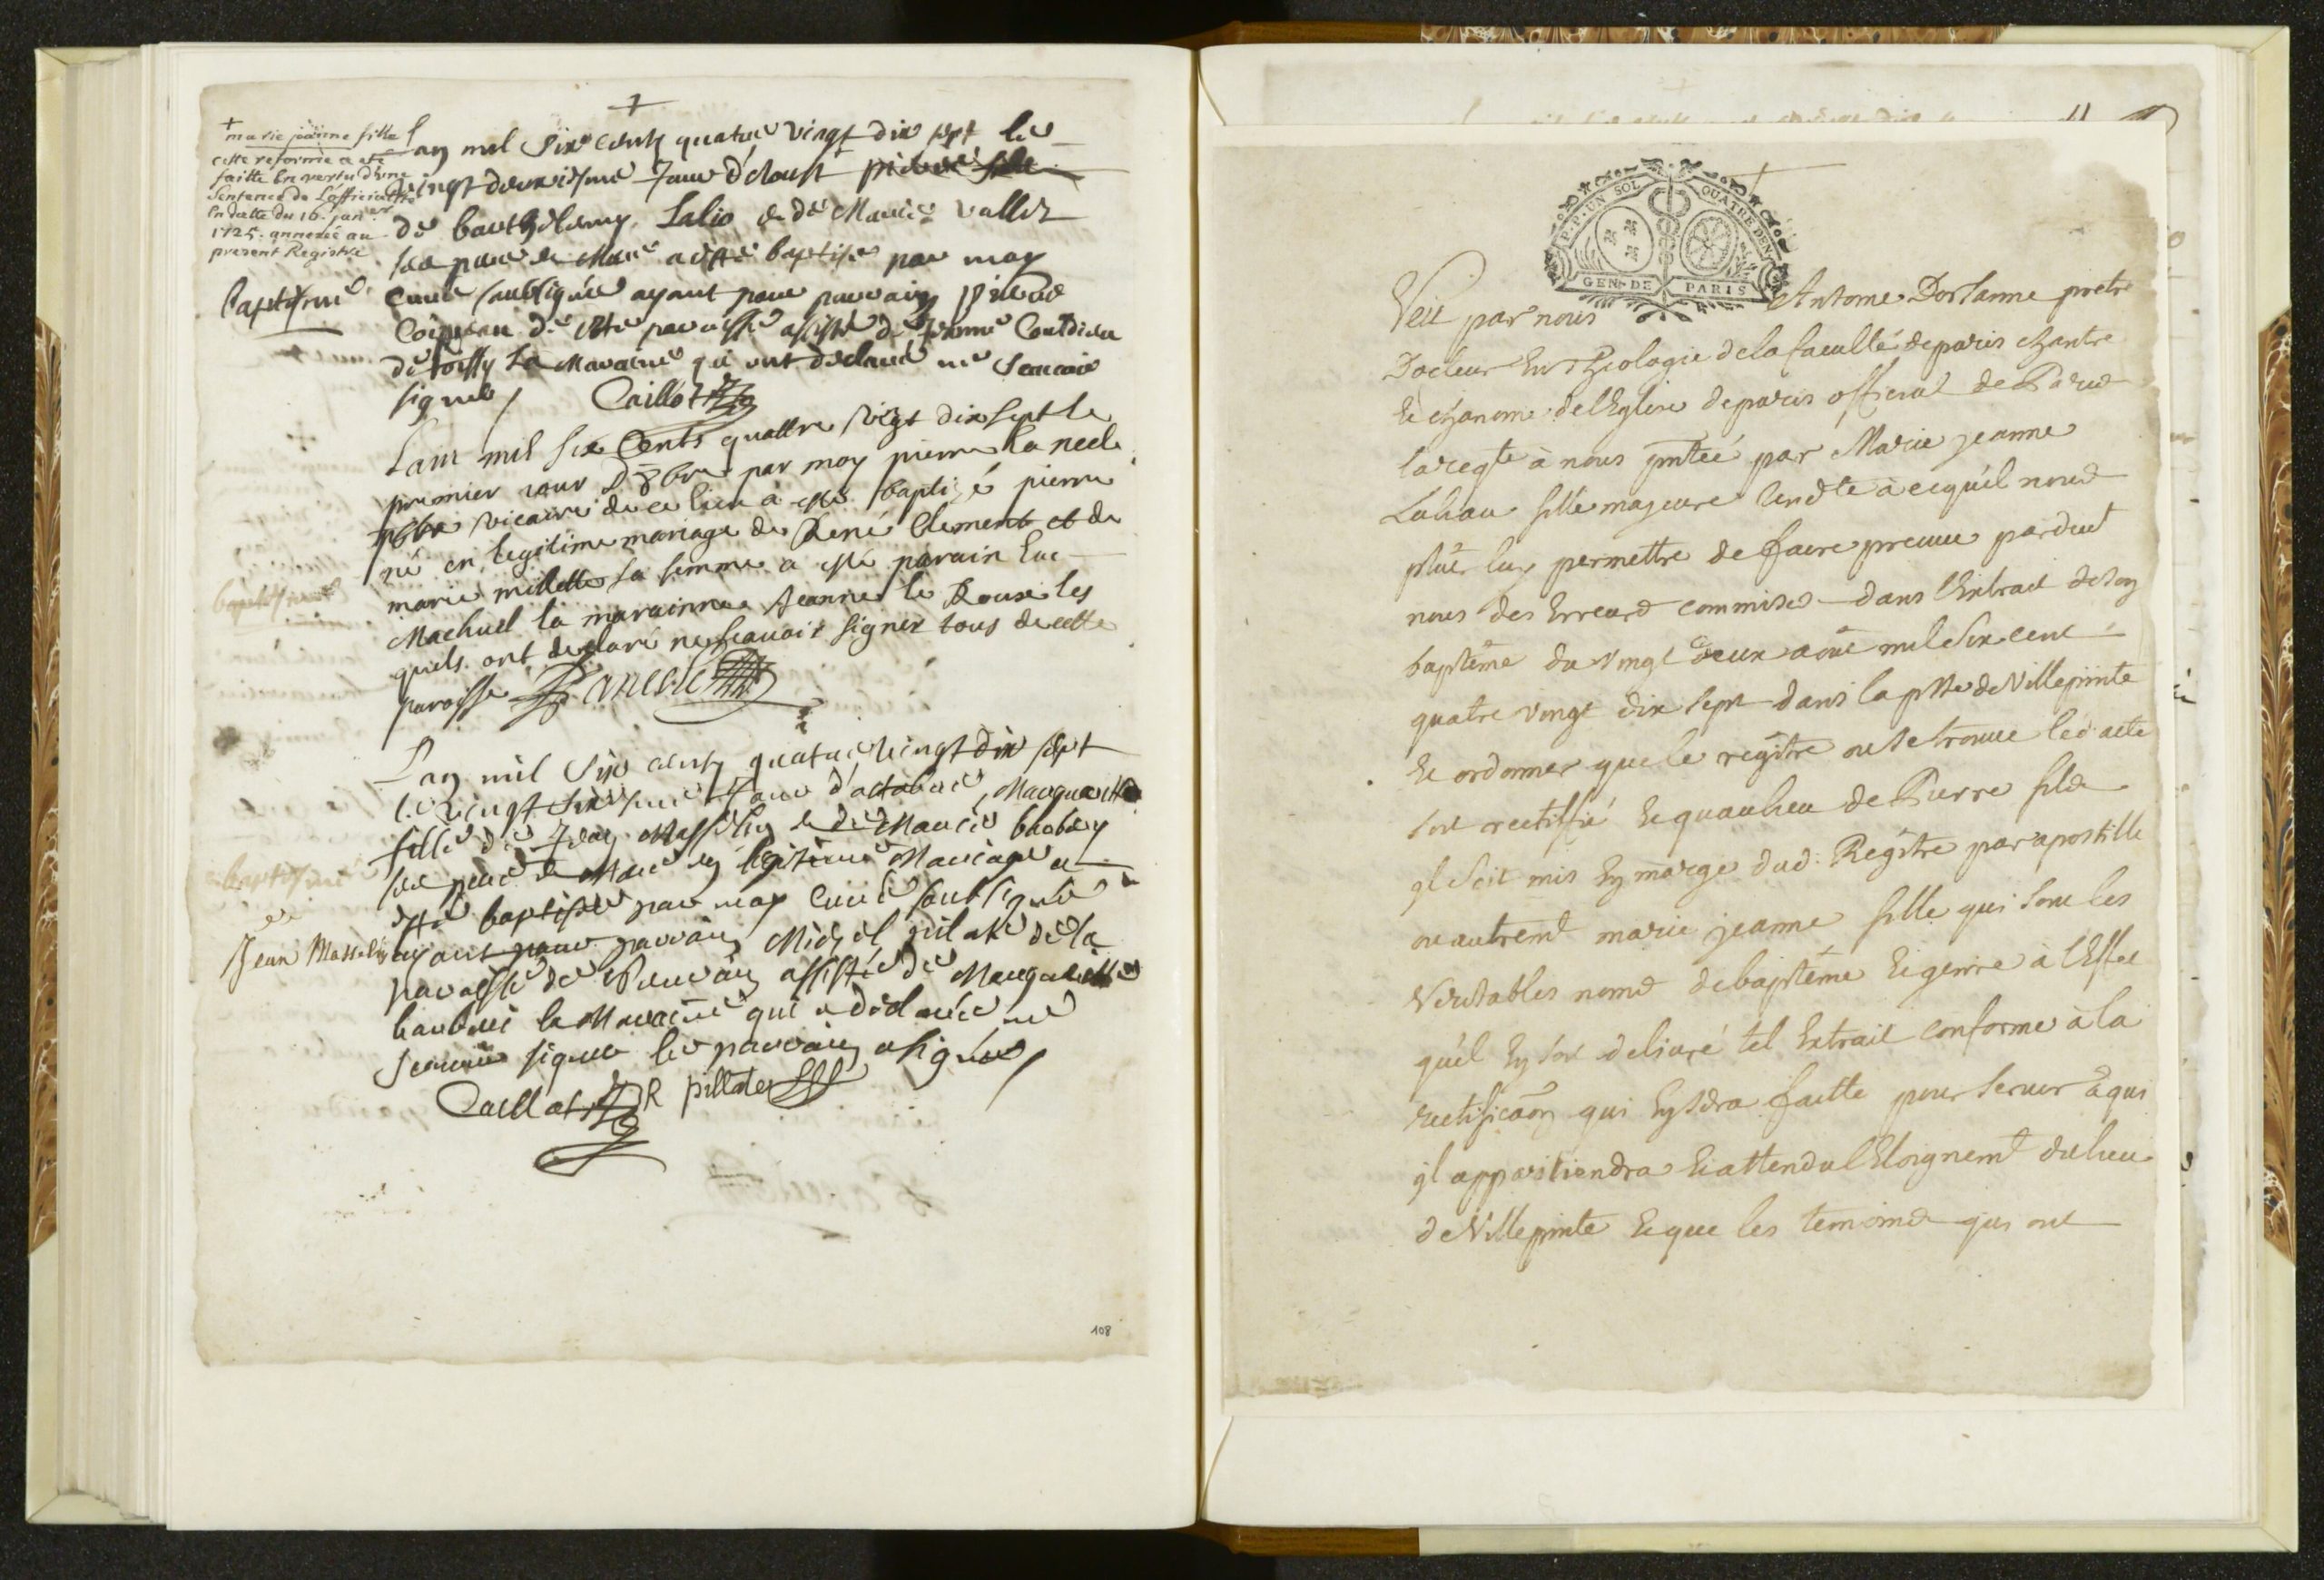 +
+
marie jeanne fille
cette reforme a eté
faitte En vertu d'une
Sentence de L'officialité
En datte du 16. janer
1725. annexée au
present Registre
Baptesme
Lan mil Six centz quatre vingt dix sept le
vingt deuxiesme Jour d'aoust pierre fils
de barthelemy Lalio & de Marie vallet
ses pere & Mere a esté baptisé par moy
Curé soubsigné ayant pour parrain
de cette paroisse assisté de
de La Maraine qui ont declaré ne scavoir
signer / Caillot
Lann mil six Cents quattre vigt dix sept le
premier iour D'8bre par moy pierre Lanesle
pbre vicaire de ce lieu à esté baptizé pierre
né en legitime mariage de René Clement et de
marie millette sa femme a esté parain Luc
Machuel la marainne Jeanne le Roux les
quels ont declaré ne scauoir signer tous de cette
paroisse P Lanesle
baptesme
Lan mil Six centz quatre vingt dix sept
le vingt sixiesme Jour d'actobre, Margueritte
fille de Jean Masselin & de Marie
ses pere & Mere en legitime Mariage a
esté baptisée par moy Curé soubsigné
ayant pour parrain Michel pilate de la
paroisse de assistée de Margueritte
la Maraine qui a declarée ne
scavoir signer le parrain a signé /
Caillot R pillate
baptesme
de
Jean Masselin
108
11
P.P. UN SOL QUATRE DEN.
GEN. DE PARIS
Veu par nous Antoine Dorsanne pretre
Docteur En Theologie de la faculté de paris chantre
Et chanoine de l'Eglise de paris official de Paris
la reqte à nous pntée par Marie jeanne
Lahau fille majeure tendte à ce qu'il nous
plût luy permettre de faire preuve pardeut
nous des Erreurs commises dans l'Extrait de son
baptême du vingt deux aout mil Six cent
quatre vingt dix sept dans la psse de Villepinte
Et ordonner que le regître où se trouve led. acte
soit rectiffié Et qu'au lieu de Pierre fils
Il soit mis En marge dud. Regître par apostille
ou autremt marie jeanne fille qui sont les
Veritables noms de baptême Et genre à l'Effet
qu'il En soit deliuré tel Extrait conforme à la
rectificãon qui En sera faitte pour seruir à qui
Il appartiendra Et attendu l'Eloignemt du lieu
de Villepinte Et que les temoins qui ont